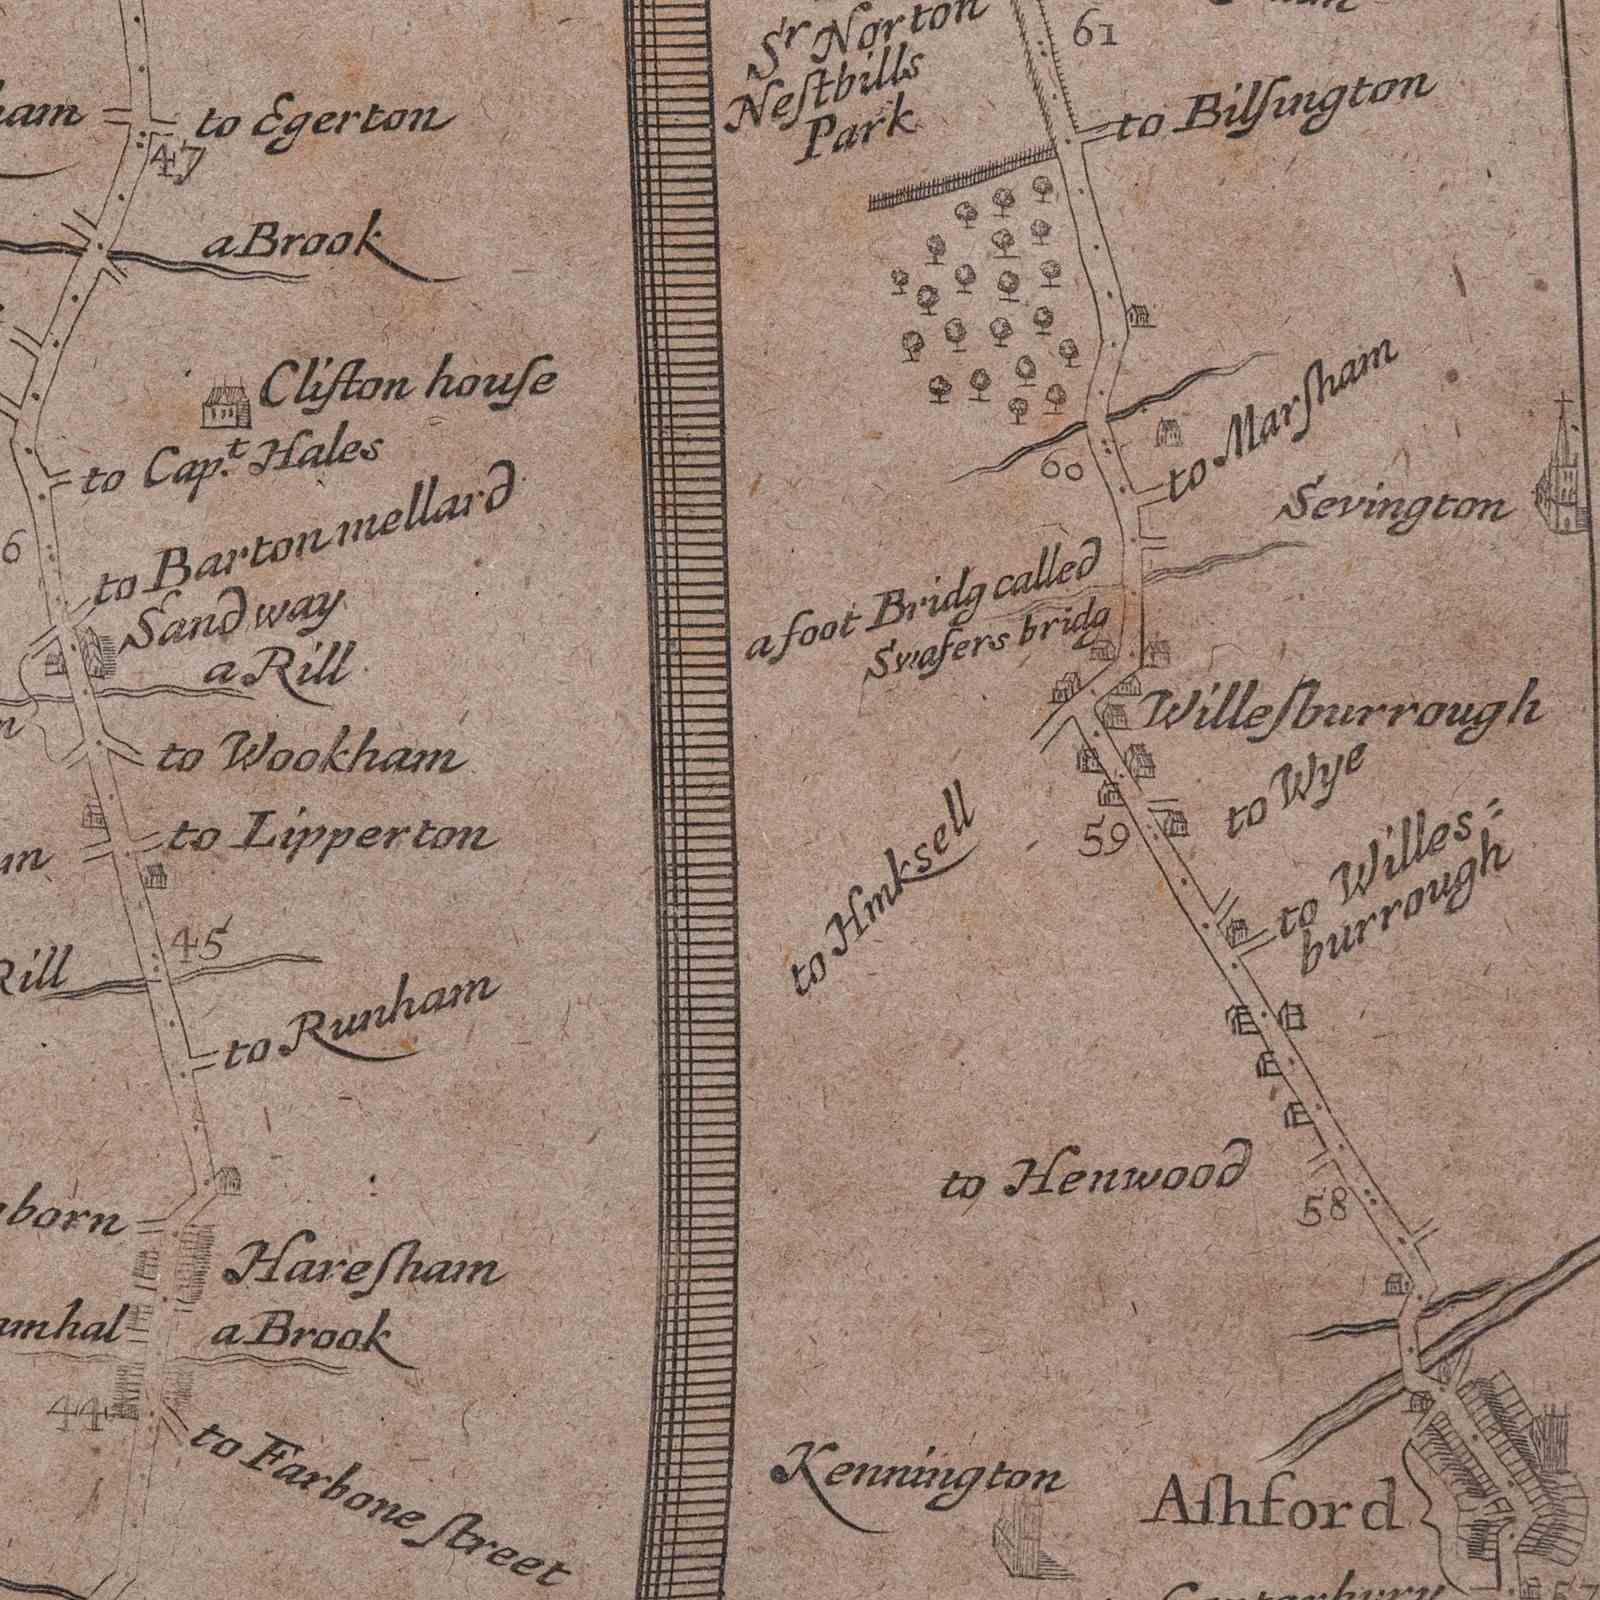 to Egerton
47
a Brook
Clifton house
to Capt. Hales
to Barton mellard
6
Sandway
a Rill
to Wookham
to Lipperton
45
Rill
to Runham
born
Hareſham
a Brook
44
to Farbone ſtreet
Sr Norton
Neſtbills
Park
61
to Bilſington
60
to Marſham
Sevington
a foot Bridg called
Swafers bridg
Willeſburrough
to Wye
59
to Willes=
burrough
to Hinksell
to Henwood
58
Kennington
Aſhford
57